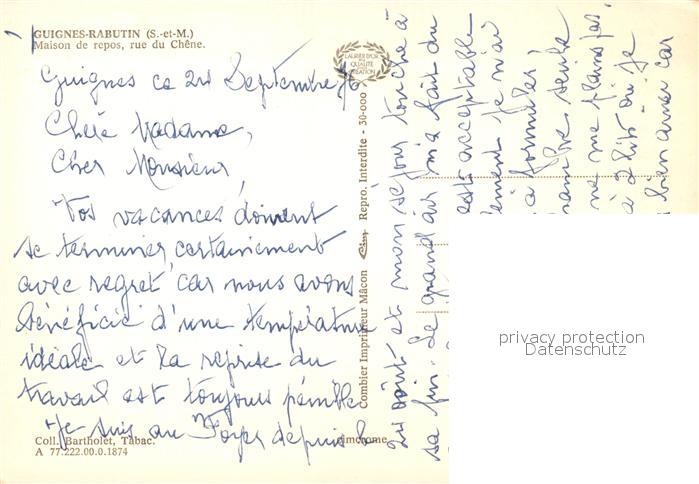 GUIGNES-RABUTIN (S.-et-M.)
Maison de repos, rue du Chêne.
LAURIER D'OR
DE LA
QUALITÉ
CRÉATION
Guignes ce 24 Septembre 76
Chère Madame,
Cher Monsieur,
Vos vacances doivent
se terminer certainement
avec regret car nous avons
bénéficié d'une température
idéale et la reprise du
travail est toujours pénible
Je suis au Foyer depuis le
24 août et mon séjour touche à
sa fin. Le grand air m'a fait du
est acceptable
je n'ai
à formuler
seule
ne me plains pas
à 2 lits où je
bien aimer car
Combier Imprimeur Mâcon Cim Repro. Interdite - 30-000
cimcrome
Coll. Bartholet, Tabac.
A 77.222.00.0.1874
privacy protection
Datenschutz